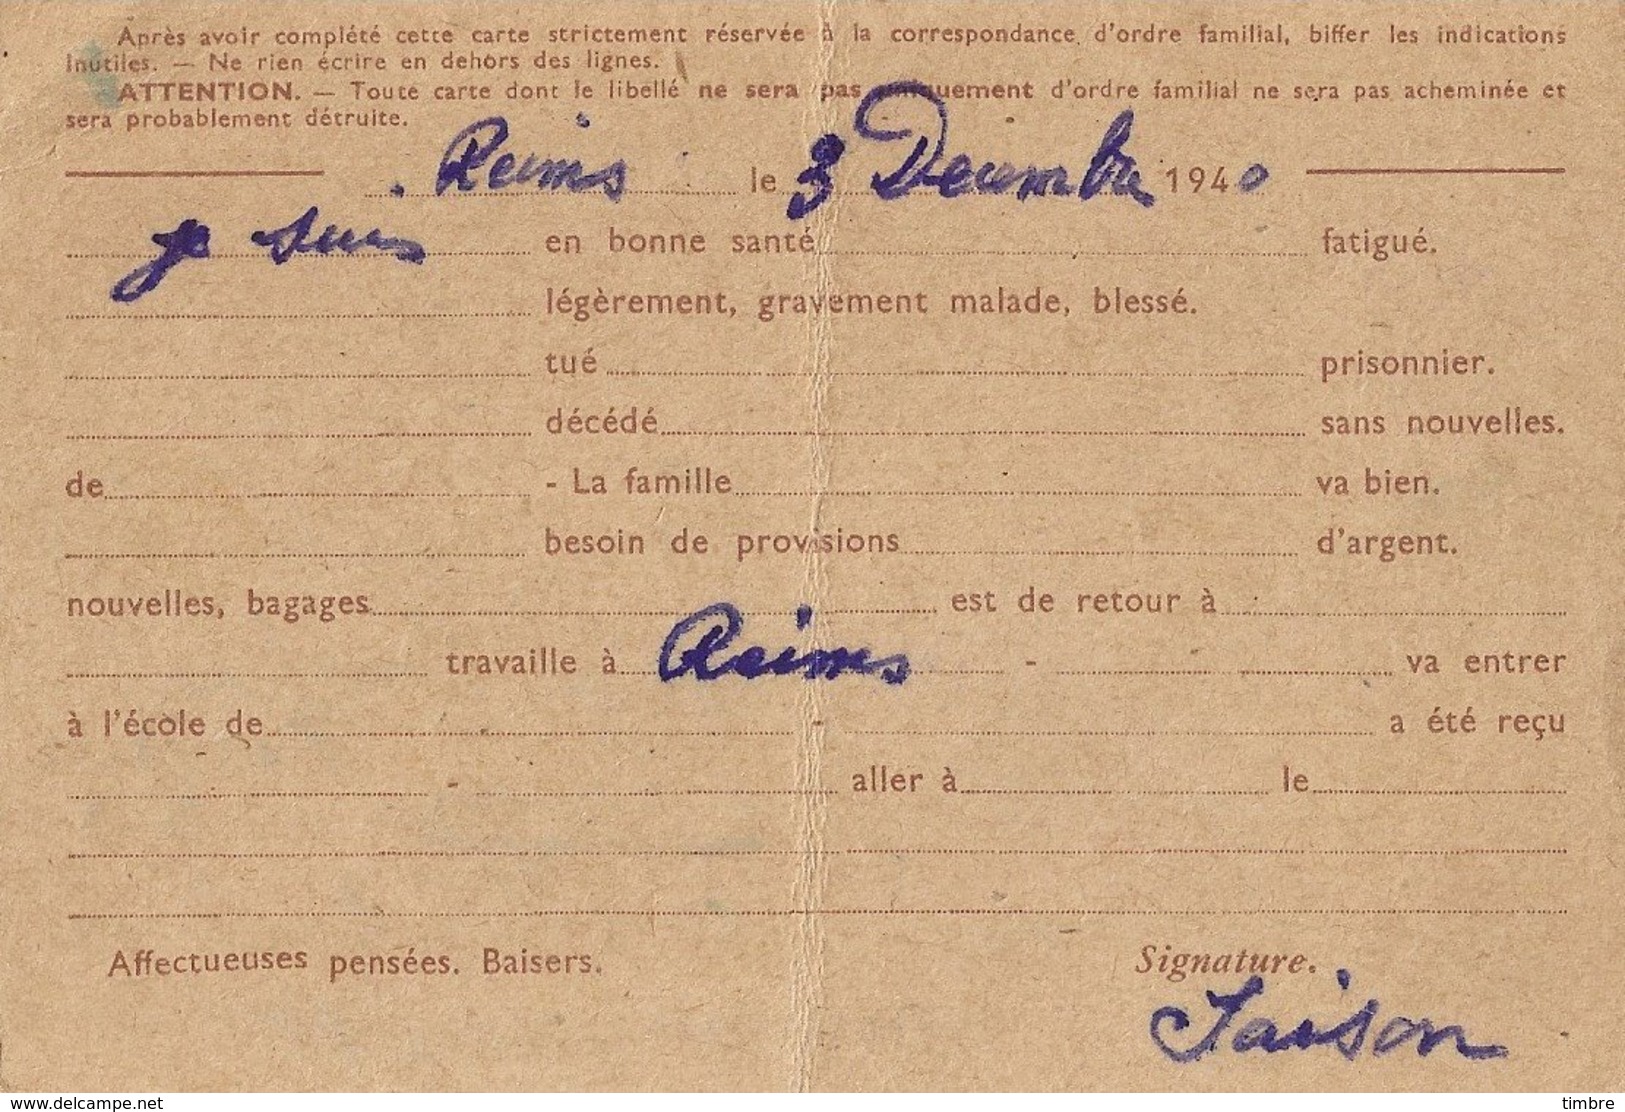 Après avoir complété cette carte strictement réservée à la correspondance d'ordre familial, biffer les indications
inutiles. — Ne rien écrire en dehors des lignes.
ATTENTION. — Toute carte dont le libellé ne sera pas uniquement d'ordre familial ne sera pas acheminée et
sera probablement détruite.
Reims le 3 Decembre 1940
je suis en bonne santé fatigué.
légèrement, gravement malade, blessé.
tué prisonnier.
décédé sans nouvelles.
de - La famille va bien.
besoin de provisions d'argent.
nouvelles, bagages est de retour à
travaille à Reims - va entrer
à l'école de - a été reçu
- aller à le
Affectueuses pensées. Baisers. Signature.
Jaison
www.delcampe.net timbre